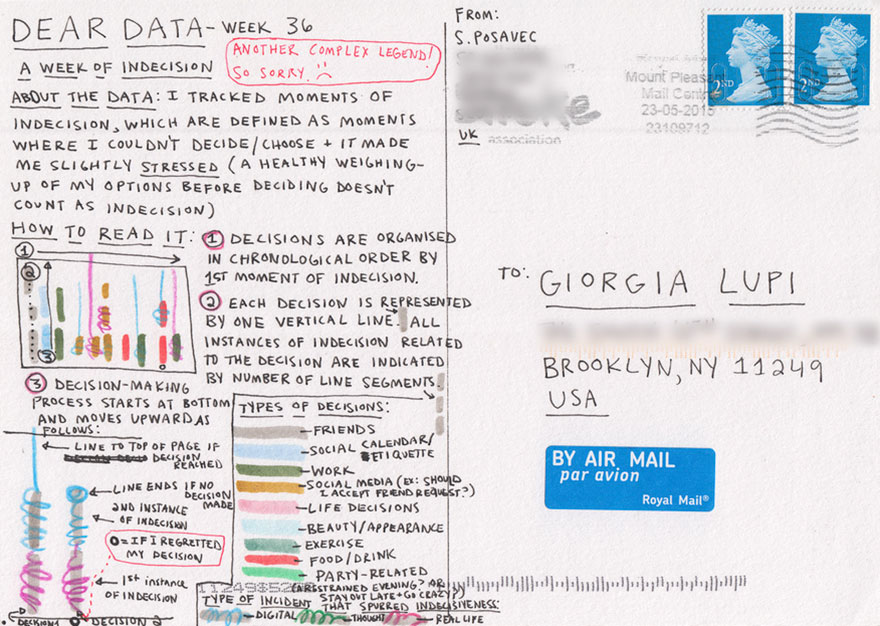 DEAR DATA - WEEK 36
A WEEK OF INDECISION
ANOTHER COMPLEX LEGEND!
SO SORRY.
ABOUT THE DATA: I TRACKED MOMENTS OF
INDECISION, WHICH ARE DEFINED AS MOMENTS
WHERE I COULDN'T DECIDE/CHOOSE + IT MADE
ME SLIGHTLY STRESSED (A HEALTHY WEIGHING-
UP OF MY OPTIONS BEFORE DECIDING DOESN'T
COUNT AS INDECISION)
HOW TO READ IT:
1
2
3
1 DECISIONS ARE ORGANISED
IN CHRONOLOGICAL ORDER BY
1ST MOMENT OF INDECISION.
2 EACH DECISION IS REPRESENTED
BY ONE VERTICAL LINE. ALL
INSTANCES OF INDECISION RELATED
TO THE DECISION ARE INDICATED
BY NUMBER OF LINE SEGMENTS.
3 DECISION-MAKING
PROCESS STARTS AT BOTTOM
AND MOVES UPWARD AS
FOLLOWS:
LINE TO TOP OF PAGE IF
DECISION
REACHED
LINE ENDS IF NO
DECISION
MADE
2ND INSTANCE
OF INDECISION
O = IF I REGRETTED
MY DECISION
1ST INSTANCE
OF INDECISION
DECISION 1
DECISION 2
TYPES OF DECISIONS:
FRIENDS
SOCIAL CALENDAR/
ETIQUETTE
WORK
SOCIAL MEDIA (EX: SHOULD
I ACCEPT FRIEND REQUEST?)
LIFE DECISIONS
BEAUTY/APPEARANCE
EXERCISE
FOOD/DRINK
PARTY-RELATED
(A RESTRAINED EVENING? OR
STAY OUT LATE + GO CRAZY?)
TYPE OF INCIDENT
THAT SPURRED INDECISIVENESS:
DIGITAL
THOUGHT
REAL LIFE
FROM:
S. POSAVEC
UK
association
Mount Pleasant
Mail Centre
23-05-2015
23109712
2ND
2ND
TO: GIORGIA LUPI
BROOKLYN, NY 11249
USA
BY AIR MAIL
par avion
Royal Mail®